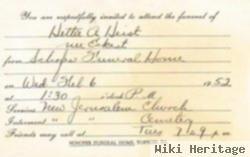 You are respectfully invited to attend the funeral of
Hettie A Deist
nee Eckert
from Schofer Funeral Home
on Wed Feb 6 1952
at 1:30 o'clock P M
Services New Jerusalem Church
Interment " " Cemetery
Friends may call at Tues 7 to 9 p m
SCHOFER FUNERAL HOME, TOPTON, PA.
Wiki Heritage